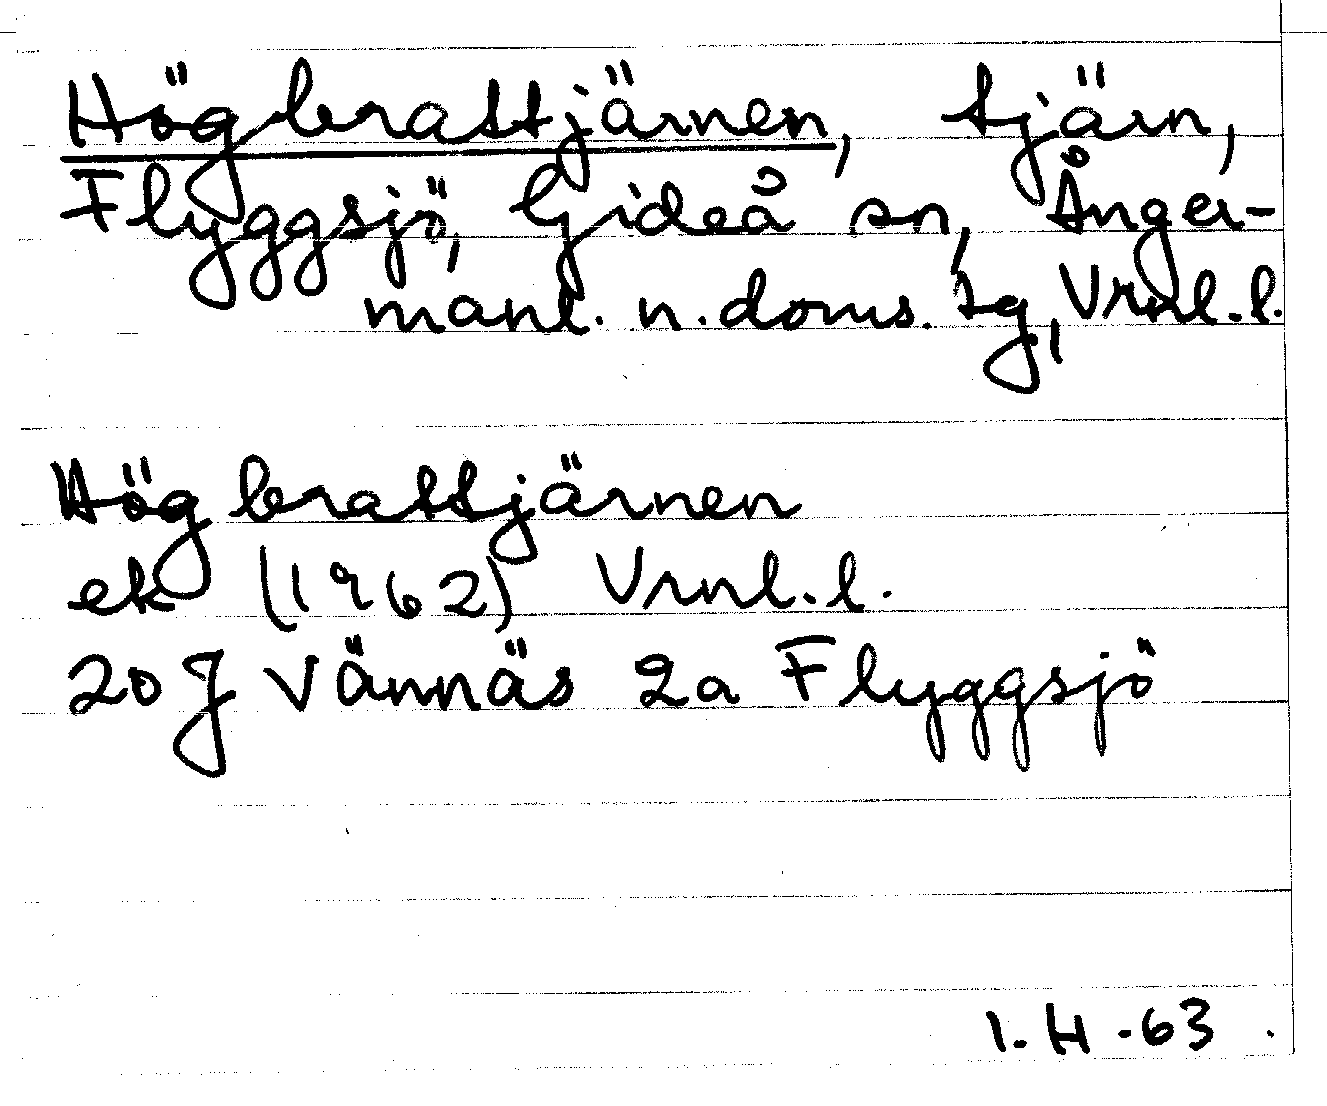 Högbrattjärnen, tjärn,
Flyggsjö, Gideå sn, Ånger-
manl. n. doms. tg, Vrnl. l.
Högbrattjärnen
ek (1962) Vrnl. l.
20 J Vännäs 2a Flyggsjö
I. H -63